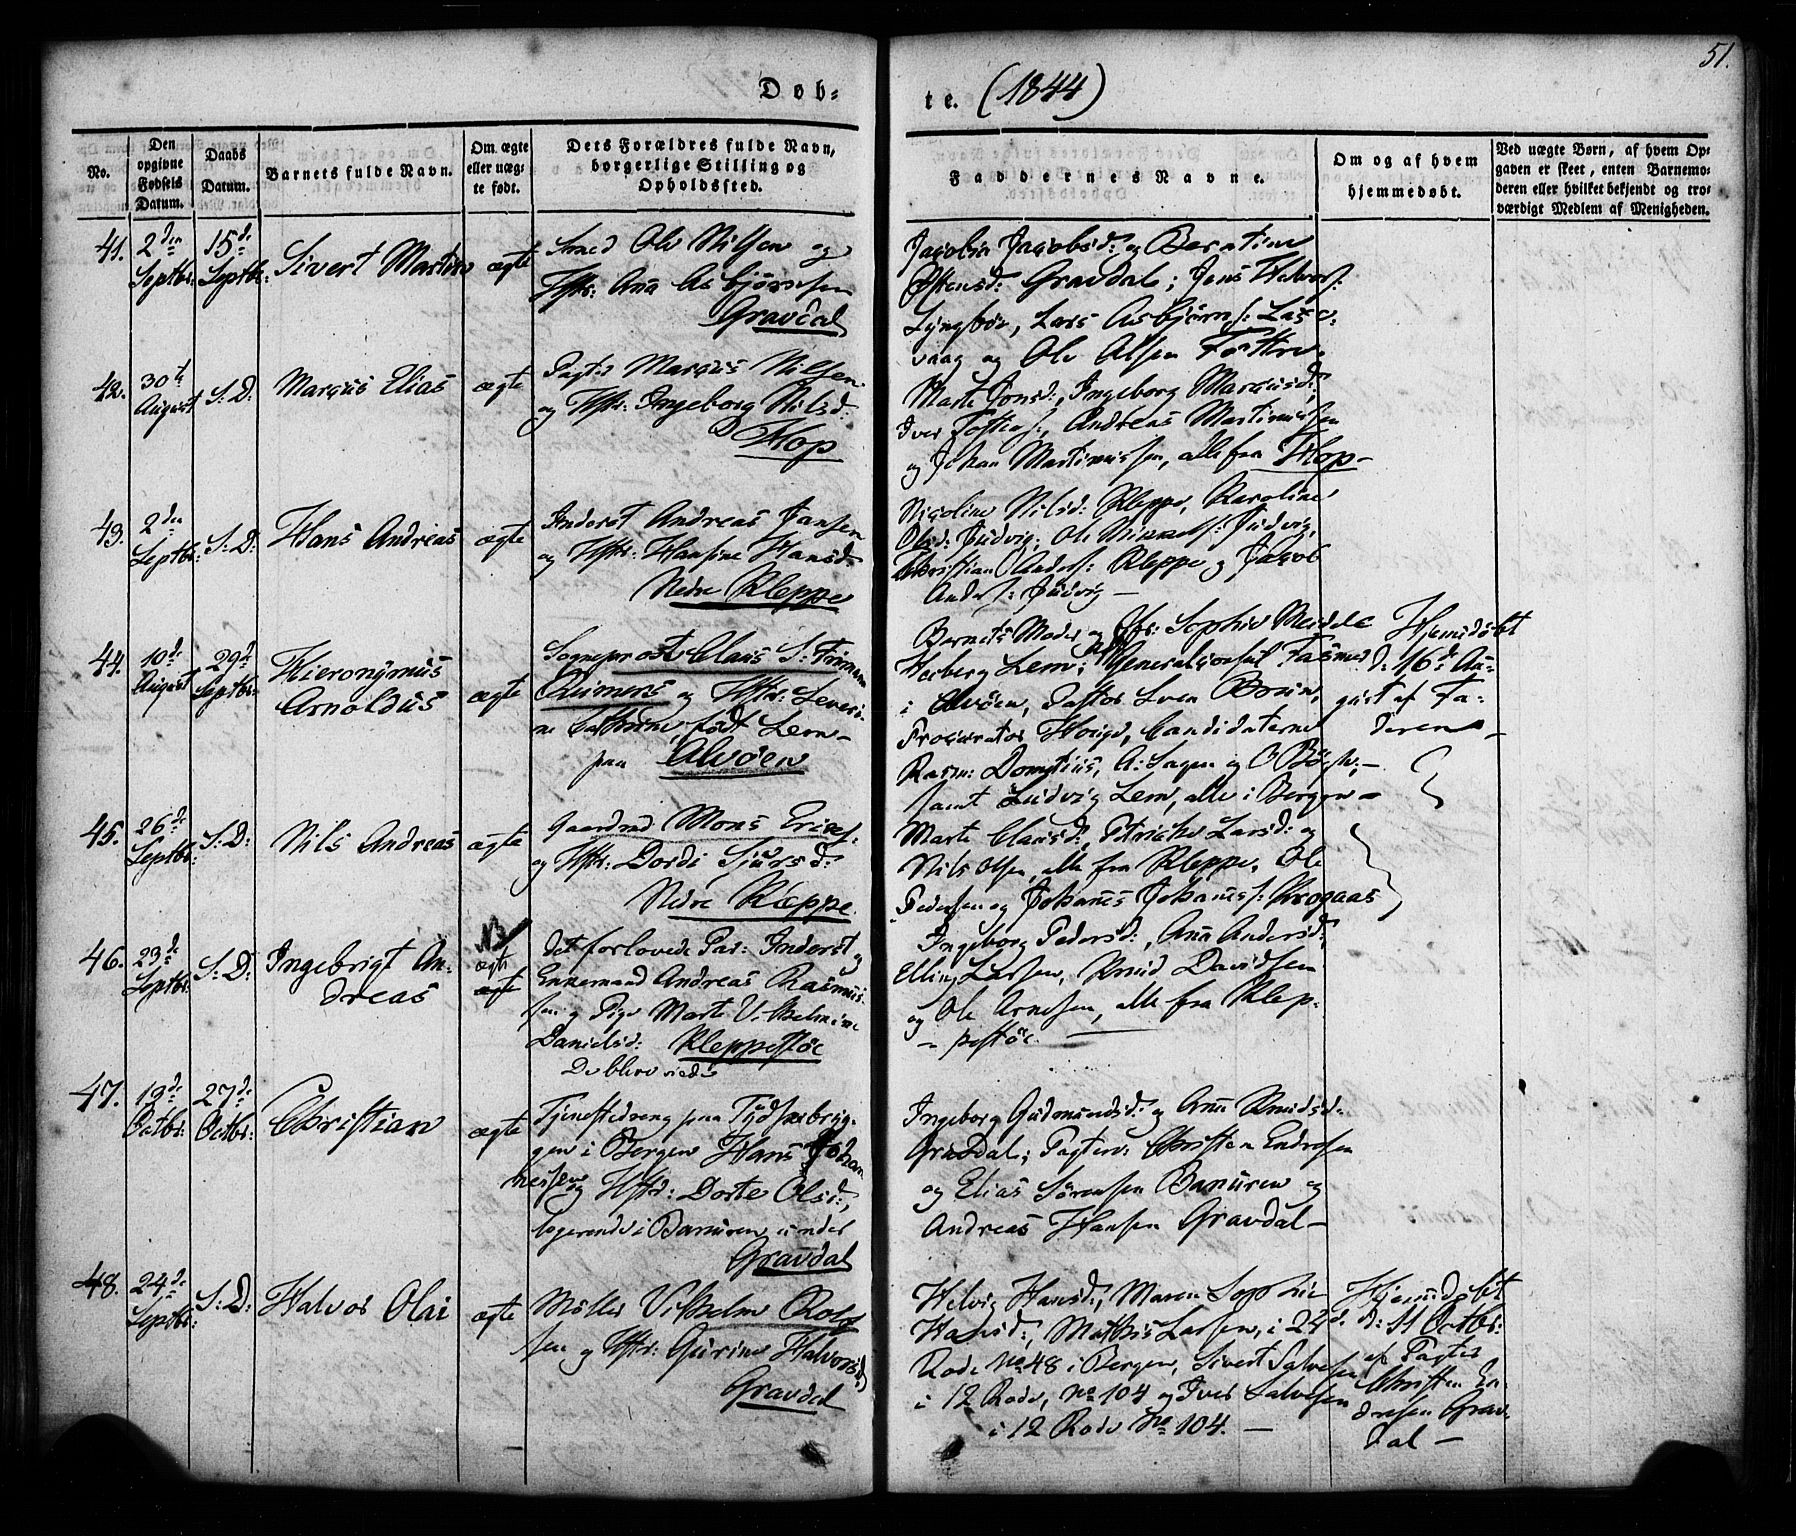 51.
Døb-
te. (1844)
No.
Den opgivne Fødsels Datum.
Daabs Datum.
Barnets fulde Navn.
Om ægte eller uægte født.
Dets Forældres fulde Navn, borgerlige Stilling og Opholdssted.
Faddernes Navne.
Om og af hvem hjemmedøbt.
Ved uægte Børn, af hvem Opgaven er skeet, enten Barnemoderen eller hvilket bekjendt og troværdigt Medlem af Menigheden.
41.
2den Septbr:
15de Septbr:
Sivert Martin
ægte
Smed Ole Nilsen og
Hstr: Ana Asbjørnsen
Gravdal
Jacobine Jacobsd: og Berntine
Østensd: Gravdal; Jens Halvors:
Lyngbøe, Lars Asbjørns: Laxe-
vaag og Ole Olsen
42.
30te August
S: D:
Marcus Elias
ægte
Pagter Marcus Nilsen
og Hstr: Ingeborg Nilsd:
Hop
Marte Jonsd:, Ingeborg Marcusd:,
Iver, Andreas Martinussen
og Johan Martinussen, alle fra Hop -
43.
2den Septbr:
S: D:
Hans Andreas
ægte
Inderst Andreas Jansen
og Hstr: Hansine Hansd:
Nedre Kleppe
Nicoline Nilsd: Kleppe, Karoline
Olsd: Judvig, Ole: Judvig,
Christian Anders: Kleppe og Jacob
Anders: Judvig -
44.
10de August
29de Septbr:
Hieronymus
Arnoldus
ægte
Sogneprost Claus S: Firmann
Reimers og Hstr: Severi-
ne Cathrine, født Lem -
paa Alvøen
Barnets Moder og Sophie
Lem, Generalconsul Fasmer
i Alvøen, Pastor Sven Brun,
Procurator, Candidaterne
Rasm: Domstius, A: Sagen og O Bøgh, -
samt Ludvig Lem, alle i Bergen -
Hjemmedøbt
d: 16de Au-
gust af Fa-
deren -
45.
26de Septbr:
S: D:
Nils Andreas
ægte
Gaardmd Mons Erics:
og Hstr: Dordi Sjursd:
Nedre Kleppe
Marte Clausd:, Larsd: og
Nils Olsen, alle fra Kleppe, Ole
Pedersen og Johanes Johaness: Krogaas
46.
23de Septbr:
S: D:
Ingebrigt An-
dreas
NB
ægte
ægte
Det forlovede Par: Inderst og
Enkemand Andreas Rasmus-
sen og Pige Marte Vilhelmine
Danielsd: Kleppestøe
De bleve viede
Ingeborg Pedersd:, Ana Andersd:
Elling Larsen, Knud Davidsen
og Ole Arnesen, alle fra Klep-
- pestøe.
47.
19de Octbr:
27de Octbr:
Christian
ægte
Tjenestedreng paa Tydskebryg-
gen i Bergen Hans Johan-
nessen og Hstr: Dorte Olsd:,
logerende i Banuren under
Gravdal
Ingeborg Gudmundsd: og Ana Knudsd:
Gravdal; Pagterne Christen Endresen
og Elias Sørensen Banuren og
Andreas Hansen Gravdal -
48.
24de Septbr:
S: D:
Halvor Olai
ægte
Møller Vilhelm Rolf
sen og Hstr: Gurine Halvorsd:
Gravdal
Helvig Hansd:, Maren Sophie
Hansd:, Mathis Larsen, i 22d
Rode No 48 i Bergen, Sivert Salvesen
i 12 Rode, No 104 og Iver Salvesen
i 12 Rode No 104. -
Hjemmedøbt
d: 11 Octbr:
af Pagter
Christen En-
dresen Grav-
dal -